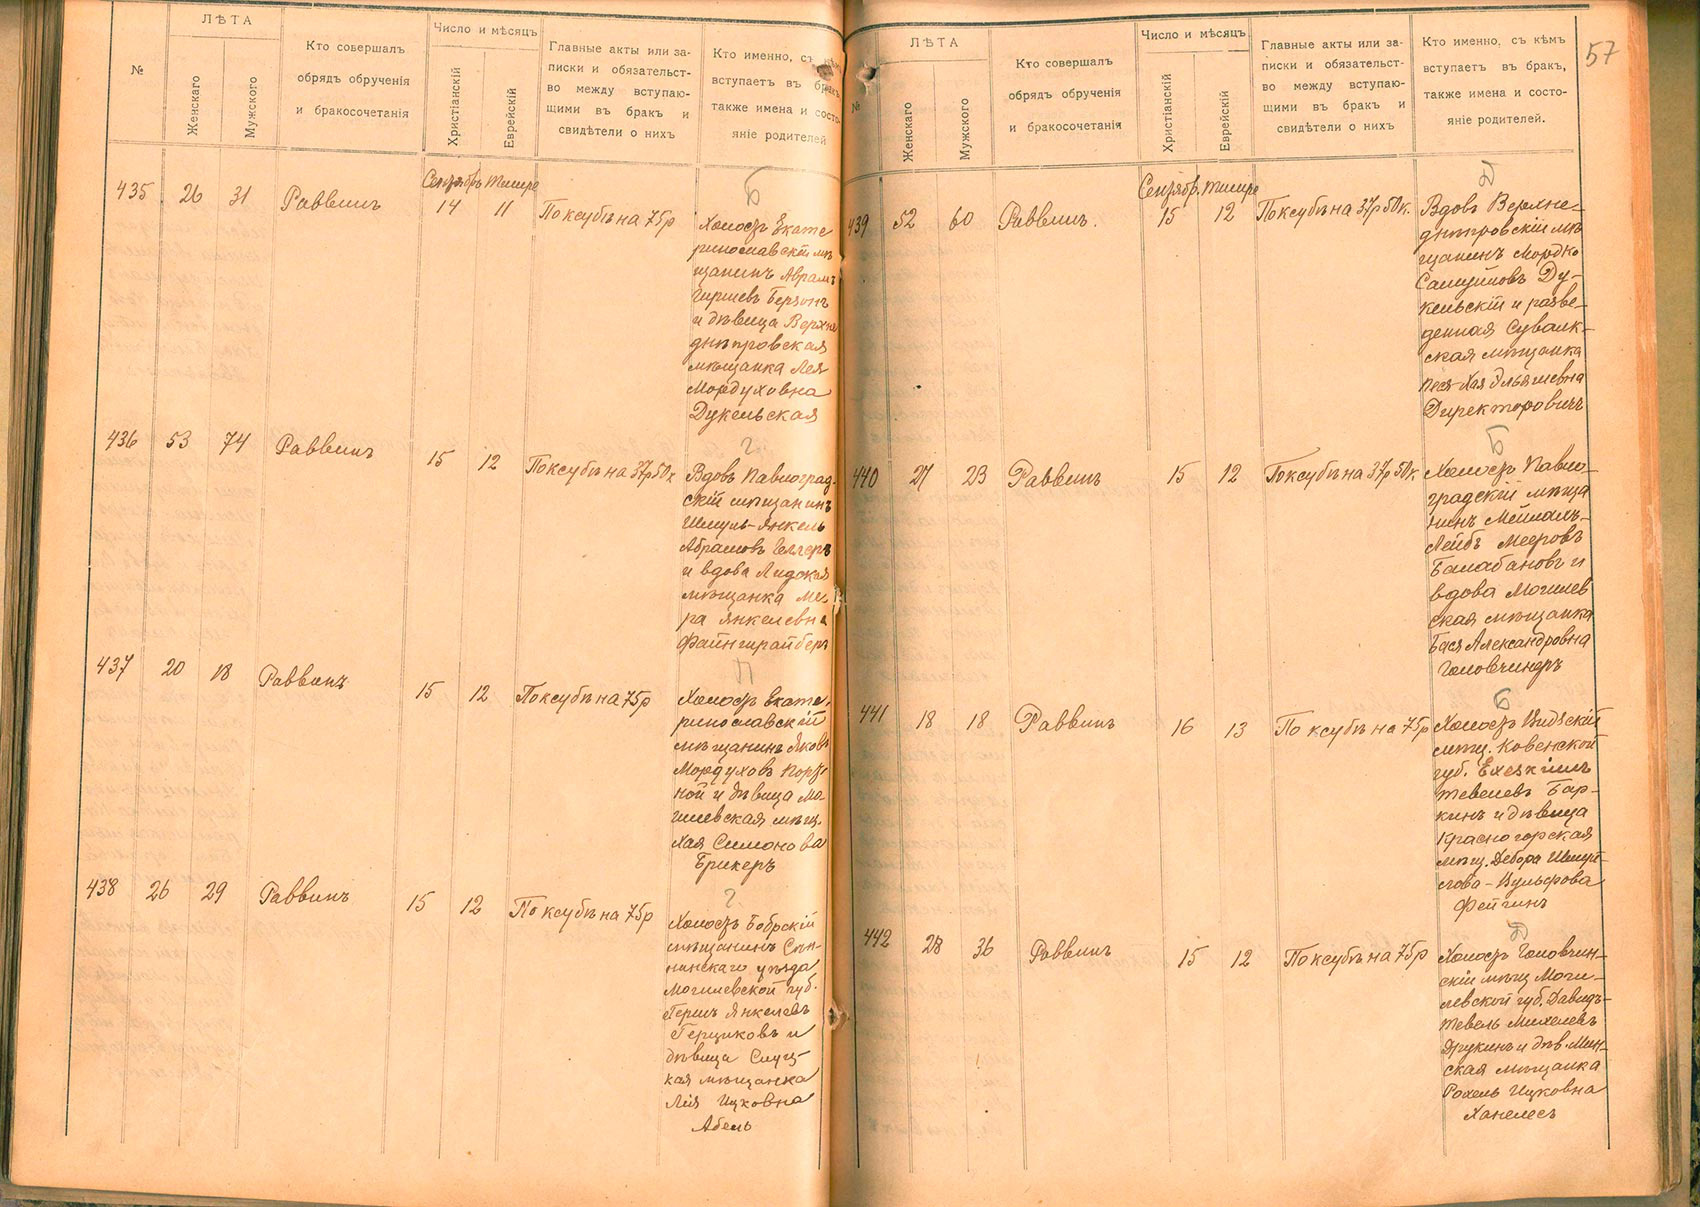 №
ЛѢТА
Женскаго
Мужского
Кто совершалъ
обрядъ обрученія
и бракосочетанія
Число и мѣсяцъ
Христіанскій
Еврейскій
Главные акты или за-
писки и обязательст-
во между вступаю-
щими въ бракъ и
свидѣтели о нихъ
Кто именно, съ кѣмъ
вступаетъ въ бракъ,
также имена и состо-
яніе родителей
435
26
31
Раввинъ
Сентябрь Тишре
14
11
По ксубѣ на 75р
Б
Холостъ Екате
ринославскій мѣ
щанинъ Аврамъ
Гиршевъ Берзонъ
и дѣвица Верхне
днѣпровская
мѣщанка Лея
Мордуховна
Дукельская
436
53
74
Раввинъ
15
12
По ксубѣ на 37р 50к
Г
Вдовъ Павлоград-
скій мѣщанинъ
Шмуль-Янкель
Абрамовъ Геллеръ
и вдова Лидская
мѣщанка Ме-
ра Янкелевна
437
20
18
Раввинъ
15
12
По ксубѣ на 75р
П
Холостъ Екате-
ринославскій
мѣщанинъ Яковъ
Мордуховъ Порт-
ной и дѣвица Мо-
гилевская мѣщ.
Хая Симонова
Брикеръ
438
26
29
Раввинъ
15
12
По ксубѣ на 75р
Г
Холостъ Бобрскій
мѣщанинъ Сѣн-
нинскаго уѣзда
Могилевской губ.
Гершъ Янкелевъ
Герциковъ и
дѣвица Слуц-
кая мѣщанка
Лея Ицковна
Абель
57
№
ЛѢТА
Женскаго
Мужского
Кто совершалъ
обрядъ обрученія
и бракосочетанія
Число и мѣсяцъ
Христіанскій
Еврейскій
Главные акты или за-
писки и обязательст-
во между вступаю-
щими въ бракъ и
свидѣтели о нихъ
Кто именно, съ кѣмъ
вступаетъ въ бракъ,
также имена и состо-
яніе родителей.
439
52
60
Раввинъ.
Сентябр. Тишре
15
12
По ксубѣ на 37р 50к.
Д
Вдовъ Верхне-
днѣпровскій мѣ
щанинъ Мордко
Самуйловъ Ду-
кельскій и разве-
денная Сувалк-
ская мѣщанка
Песя-Хая Эльяшевна
Директоровичъ
440
27
23
Раввинъ
15
12
По ксубѣ на 37р 50к.
Б
Холостъ Павло-
градскій мѣща
нинъ Мейлахъ-
Лейбъ Мееровъ
Балабановъ и
вдова Могилев
ская мѣщанка
Бася Александровна
Головчинеръ
441
18
18
Раввинъ
16
13
По ксубѣ на 75р
Б
Холостъ Видзскій
мѣщ. Ковенской
губ. Ехезкіилъ
Тевелевъ Бар-
кинъ и дѣвица
Красногорская
мѣщ. Дебора Шмуй-
лова-Вульфова
Фейгинъ
442
28
36
Раввинъ
15
12
По ксубѣ на 75р
Д
Холостъ Головчин-
скій мѣщ Моги-
левской губ. Давидъ-
Тевель Михелевъ
Друкинъ и дѣв. Мин-
ская мѣщанка
Рохель Ицковна
Ханелесъ